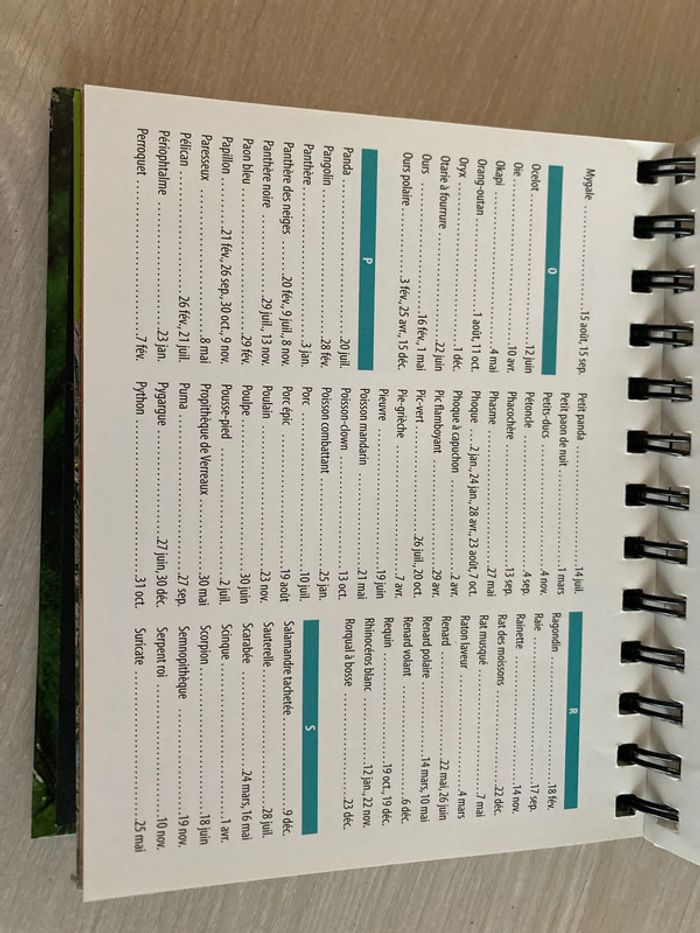 Mygale ..................15 août, 15 sep.
O
Ocelot ..................12 juin
Oie ..................10 avr.
Okapi ..................4 mai
Orang-outan ..................1 août, 11 oct.
Oryx ..................1 déc.
Otarie à fourrure ..................22 juin
Ours ..................16 fév., 1 mai
Ours polaire ..................3 fév., 25 avr., 15 déc.
P
Panda ..................20 juil.
Pangolin ..................28 fév.
Panthère ..................3 jan.
Panthère des neiges ..................20 fév., 9 juil., 8 nov.
Panthère noire ..................29 juil., 13 nov.
Paon bleu ..................29 fév.
Papillon ..................21 fév., 26 sep., 30 oct., 9 nov.
Paresseux ..................8 mai
Pélican ..................26 fév., 21 juil.
Périophtalme ..................23 jan.
Perroquet ..................7 fév.
Petit panda ..................14 juil.
Petit paon de nuit ..................1 mars
Petits-ducs ..................4 nov.
Pétoncle ..................4 sep.
Phacochère ..................13 sep.
Phasme ..................27 mai
Phoque ....2 jan., 24 jan., 28 avr., 23 août, 7 oct.
Phoque à capuchon ..................2 avr.
Pic flamboyant ..................29 avr.
Pic-vert ..................26 juil., 20 oct.
Pie-grièche ..................7 avr.
Pieuvre ..................19 juin
Poisson mandarin ..................21 mai
Poisson-clown ..................13 oct.
Poisson combattant ..................25 jan.
Porc ..................10 juil.
Porc épic ..................19 août
Poulain ..................23 nov.
Poulpe ..................30 juin
Pousse-pied ..................2 juil.
Propithèque de Verreaux ..................30 mai
Puma ..................27 sep.
Pygargue ..................27 juin, 30 déc.
Python ..................31 oct.
R
Ragondin ..................18 fév.
Raie ..................17 sep.
Rainette ..................14 nov.
Rat des moissons ..................22 déc.
Rat musqué ..................7 mai
Raton laveur ..................4 mars
Renard ..................22 mai, 26 juin
Renard polaire ..................14 mars, 10 mai
Renard volant ..................6 déc.
Requin ..................19 oct., 19 déc.
Rhinocéros blanc ..................12 jan., 22 nov.
Rorqual à bosse ..................23 déc.
S
Salamandre tachetée ..................9 déc.
Sauterelle ..................28 juil.
Scarabée ..................24 mars, 16 mai
Scinque ..................1 avr.
Scorpion ..................18 juin
Semnopithèque ..................19 nov.
Serpent roi ..................10 nov.
Suricate ..................25 mai